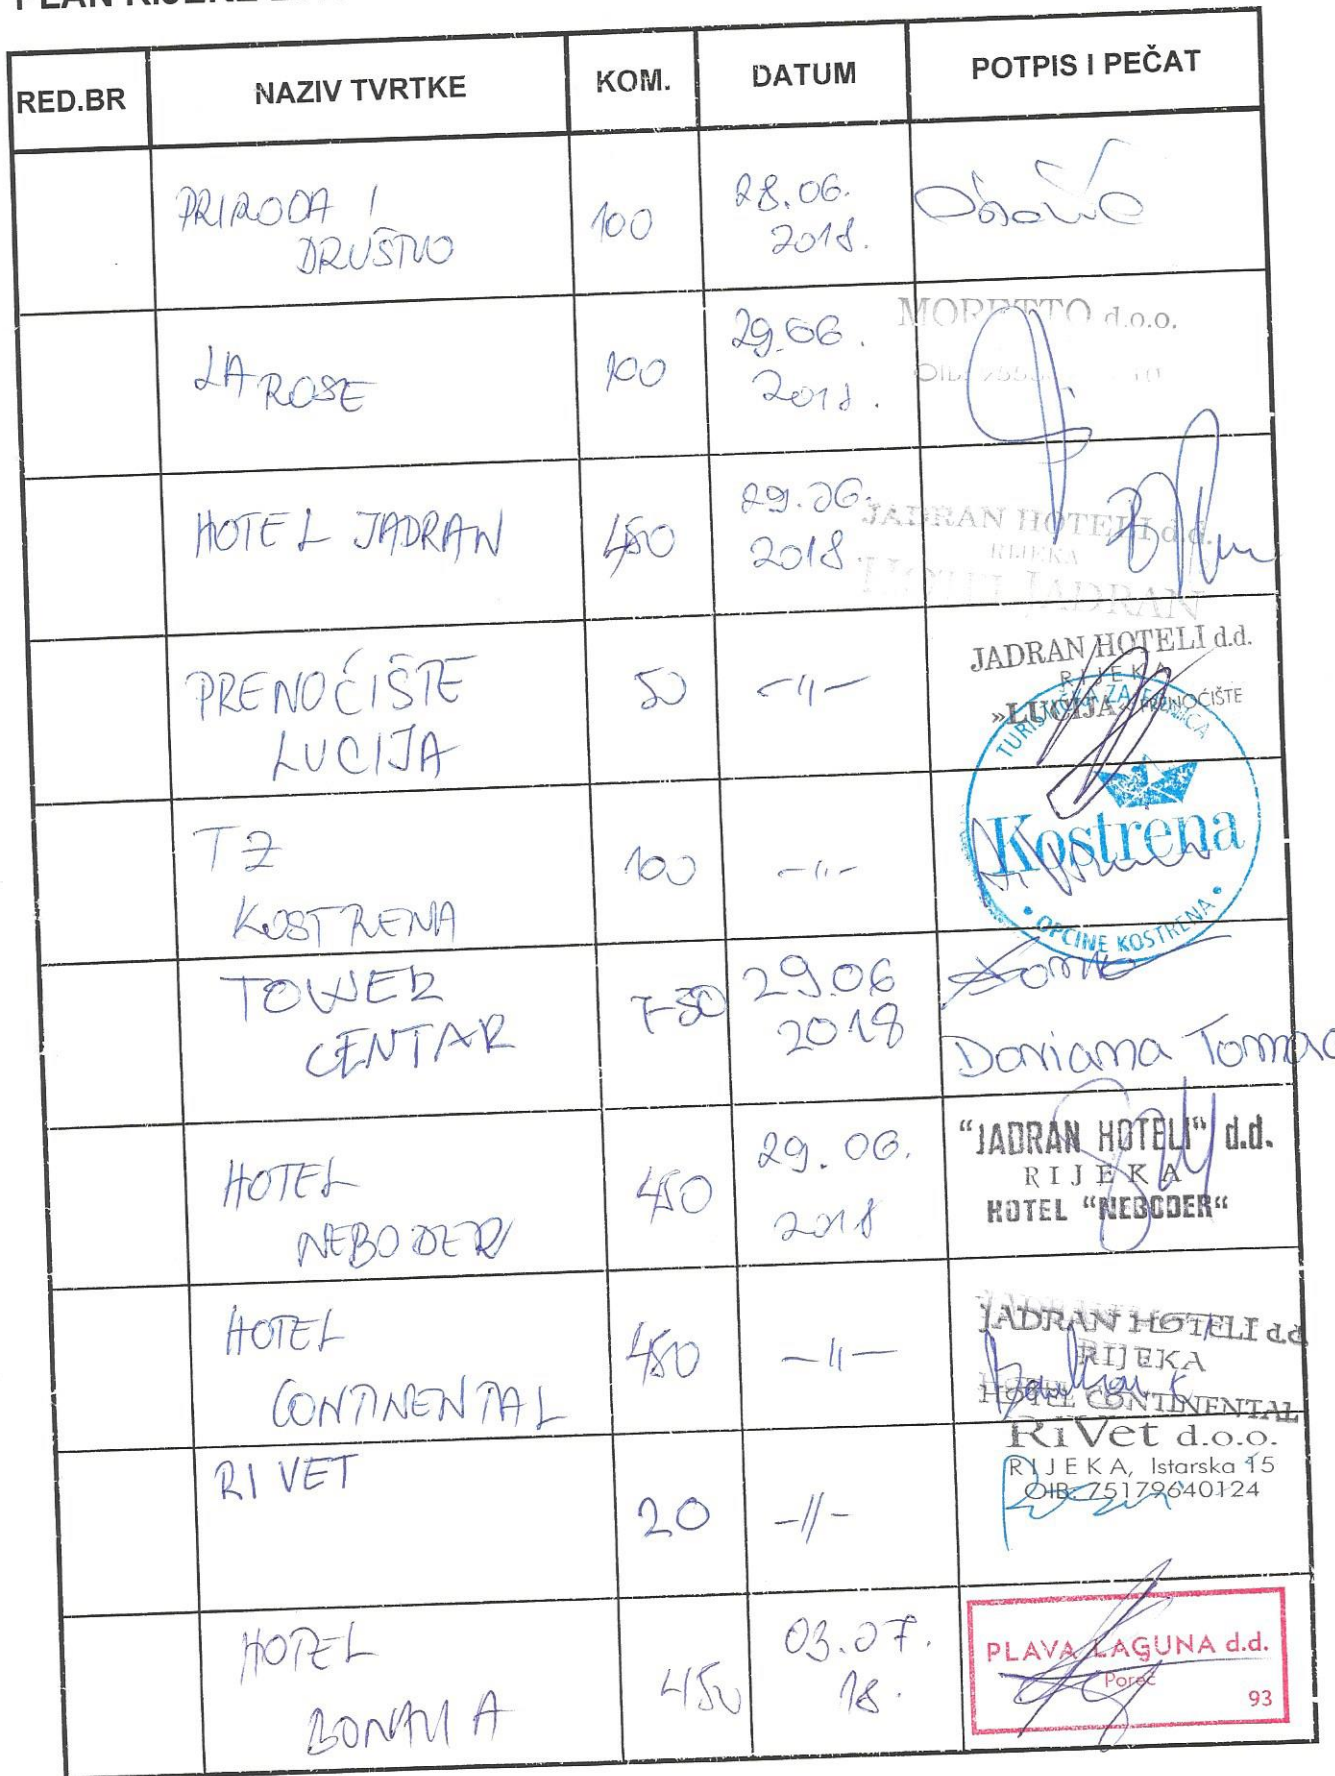 PLAN RIJEKE
RED.BR NAZIV TVRTKE KOM. DATUM POTPIS I PEČAT
PRIRODA I
DRUŠTVO
100
28.06.
2018.
LA ROSE
100
29.06.
2018.
MORETTO d.o.o.
HOTEL JADRAN
450
29.06.
2018.
JADRAN HOTELI d.d.
RIJEKA
HOTEL JADRAN
PRENOĆIŠTE
LUCIJA
50
-"-
JADRAN HOTELI d.d.
RIJEKA
»LUCIJA« PRENOĆIŠTE
TZ
KOSTRENA
100
-"-
TURISTIČKA ZAJEDNICA
Kostrena
• OPĆINE KOSTRENA •
TOWER
CENTAR
29.06
2018
Doriana Tomac
HOTEL
NEBODER
450
29.06.
2018
"JADRAN HOTELI" d.d.
RIJEKA
HOTEL "NEBODER"
HOTEL
CONTINENTAL
450
-"-
JADRAN HOTELI d.d
RIJEKA
HOTEL CONTINENTAL
RI VET
20
-"-
RiVet d.o.o.
RIJEKA, Istarska 15
OIB: 75179640124
HOTEL
BONAVIA
450
03.07.
18.
PLAVA LAGUNA d.d.
Poreč
93